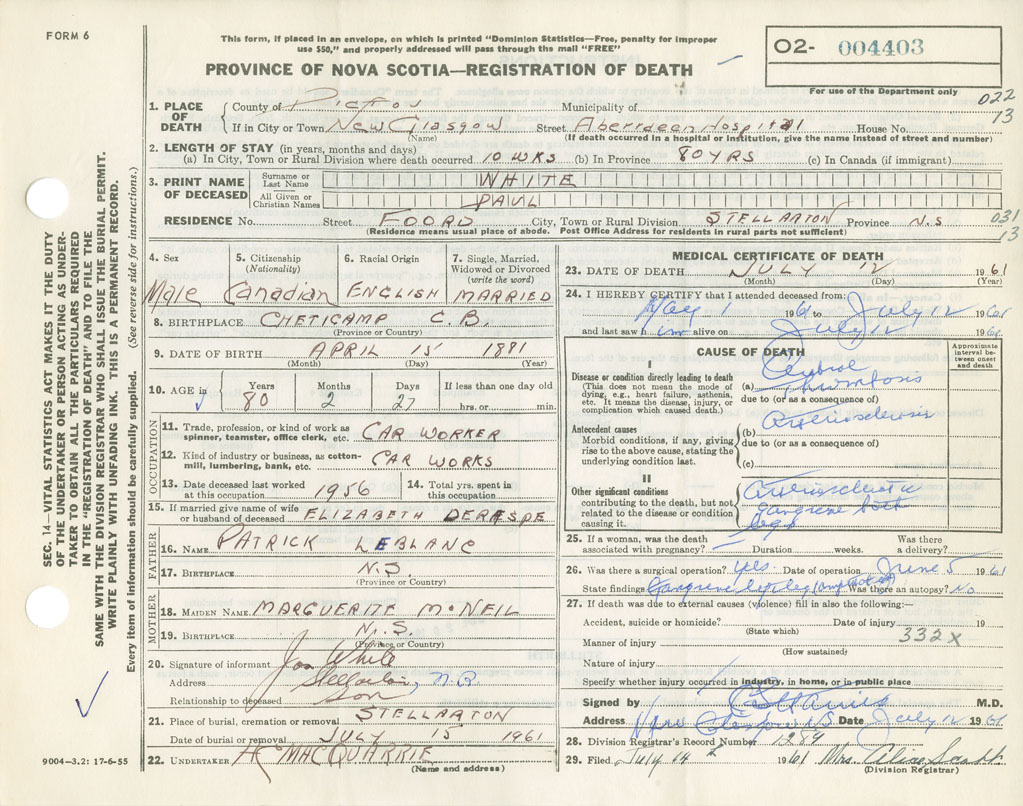 FORM 6
This form, if placed in an envelope, on which is printed "Dominion Statistics—Free, penalty for improper
use $50," and properly addressed will pass through the mail "FREE"
O2- 004403
For use of the Department only
PROVINCE OF NOVA SCOTIA—REGISTRATION OF DEATH
022
13
1. PLACE OF DEATH
County of Pictou Municipality of
If in City or Town New Glasgow Street Aberdeen Hospital House No.
(Name) (If death occurred in a hospital or institution, give the name instead of street and number)
2. LENGTH OF STAY (in years, months and days)
(a) In City, Town or Rural Division where death occurred 10 WKS (b) In Province 80 YRS (c) In Canada (if immigrant)
3. PRINT NAME OF DECEASED
Surname or Last Name WHITE
All Given or Christian Names PAUL
RESIDENCE No. Street FOORD City, Town or Rural Division STELLARTON Province N.S
(Residence means usual place of abode. Post Office Address for residents in rural parts not sufficient)
031
13
4. Sex Male
5. Citizenship (Nationality) Canadian
6. Racial Origin ENGLISH
7. Single, Married, Widowed or Divorced (write the word) MARRIED
8. BIRTHPLACE CHETICAMP C.B.
(Province or Country)
9. DATE OF BIRTH APRIL 15 1881
(Month) (Day) (Year)
10. AGE in Years 80 Months 2 Days 27 If less than one day old hrs. or min.
OCCUPATION
11. Trade, profession, or kind of work as spinner, teamster, office clerk, etc. CAR WORKER
12. Kind of industry or business, as cotton-mill, lumbering, bank, etc. CAR WORKS
13. Date deceased last worked at this occupation 1956
14. Total yrs. spent in this occupation
15. If married give name of wife or husband of deceased ELIZABETH DERESPE
FATHER
16. NAME PATRICK LEBLANC
17. BIRTHPLACE N.S
(Province or Country)
MOTHER
18. MAIDEN NAME MARGUERITE McNEIL
19. BIRTHPLACE N.S.
(Province or Country)
20. Signature of informant Jos White
Address Stellarton, N.S.
Relationship to deceased Son
21. Place of burial, cremation or removal STELLARTON
Date of burial or removal JULY 15 1961
22. UNDERTAKER MACQUARRIE
(Name and address)
MEDICAL CERTIFICATE OF DEATH
23. DATE OF DEATH JULY 12 1961
(Month) (Day) (Year)
24. I HEREBY CERTIFY that I attended deceased from:
May 1 1961 to July 12 1961
and last saw him alive on July 12 1961
CAUSE OF DEATH
Approximate interval between onset and death
I
Disease or condition directly leading to death
(This does not mean the mode of dying, e.g., heart failure, asthenia, etc. It means the disease, injury, or complication which caused death.)
(a) Cerebral thrombosis
due to (or as a consequence of)
Antecedent causes
Morbid conditions, if any, giving rise to the above cause, stating the underlying condition last.
(b) Arteriosclerosis
due to (or as a consequence of)
(c)
II
Other significant conditions
contributing to the death, but not related to the disease or condition causing it.
Arteriosclerotic
gangrene both
legs
25. If a woman, was the death associated with pregnancy? Duration weeks. Was there a delivery?
26. Was there a surgical operation? yes Date of operation June 5 1961
State findings Gangrene Was there an autopsy? No
27. If death was due to external causes (violence) fill in also the following:—
Accident, suicide or homicide? Date of injury 19
(State which)
332X
Manner of injury
(How sustained)
Nature of injury
Specify whether injury occurred in industry, in home, or in public place
Signed by M.D.
Address New Glasgow NS Date July 12 1961
28. Division Registrar's Record Number
29. Filed July 14 1961 Mrs. Alice Scott
(Division Registrar)
SEC. 14—VITAL STATISTICS ACT MAKES IT THE DUTY
OF THE UNDERTAKER OR PERSON ACTING AS UNDER-
TAKER TO OBTAIN ALL THE PARTICULARS REQUIRED
IN THE "REGISTRATION OF DEATH" AND TO FILE THE
SAME WITH THE DIVISION REGISTRAR WHO SHALL ISSUE THE BURIAL PERMIT.
WRITE PLAINLY WITH UNFADING INK. THIS IS A PERMANENT RECORD.
Every item of information should be carefully supplied. (See reverse side for instructions.)
9004-3.2: 17-6-55